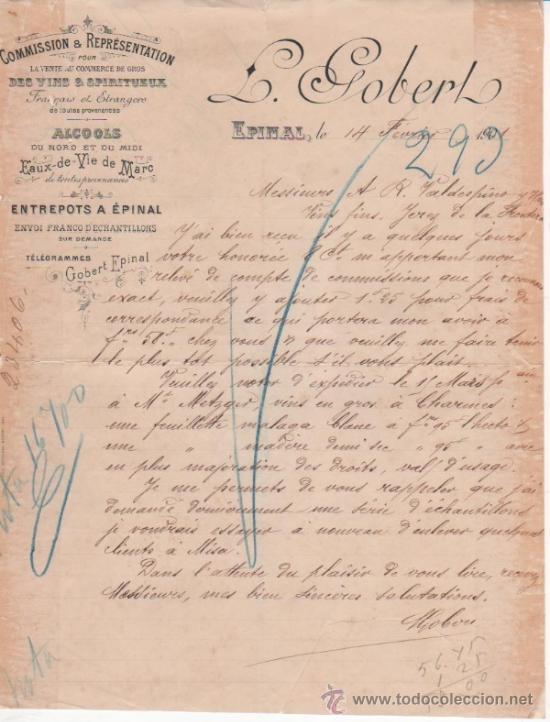 COMMISSION & REPRÉSENTATION
POUR
LA VENTE AU COMMERCE DE GROS
DES VINS & SPIRITUEUX
Français et Étrangers
de toutes provenances
ALCOOLS
DU NORD ET DU MIDI
Eaux-de-Vie de Marc
de toutes provenances
ENTREPOTS A ÉPINAL
ENVOI FRANCO D'ÉCHANTILLONS
SUR DEMANDE
TÉLÉGRAMMES
Gobert Epinal
L. Gobert
EPINAL, le 14 Fevrier
293
Messieurs A R. Valdespino y
Vins fins. Jerez de la Frontera
J'ai bien reçu il y a quelques jours
votre honorée & Ct. m apportant mon
relevé de compte de commissions que je reconnais
exact, veuillez y ajouter 1.25 pour frais de
correspondance ce qui portera mon avoir à
frs 58. chez vous & que veuillez me faire tenir
le plus tôt possible s'il vous plait.
Veuillez noter d'expédier le 15 Mars
à Mr. Metzger vins en gros à Charmes:
une feuillette malaga blanc à f. 95 l'hecto &
une " madère demi sec " 95 " avec
en plus majoration des droits, val. d'usage.
Je me permets de vous rappeler que j'ai
demandé dernièrement une série d'échantillons
je voudrais essayer à nouveau d'enlever quelques
clients à Misa.
Dans l'attente du plaisir de vous lire, recevez
Messieurs, mes bien sincères salutations.
LGobert
56.75
1.25
00
28406.
16700
todocoleccion.net